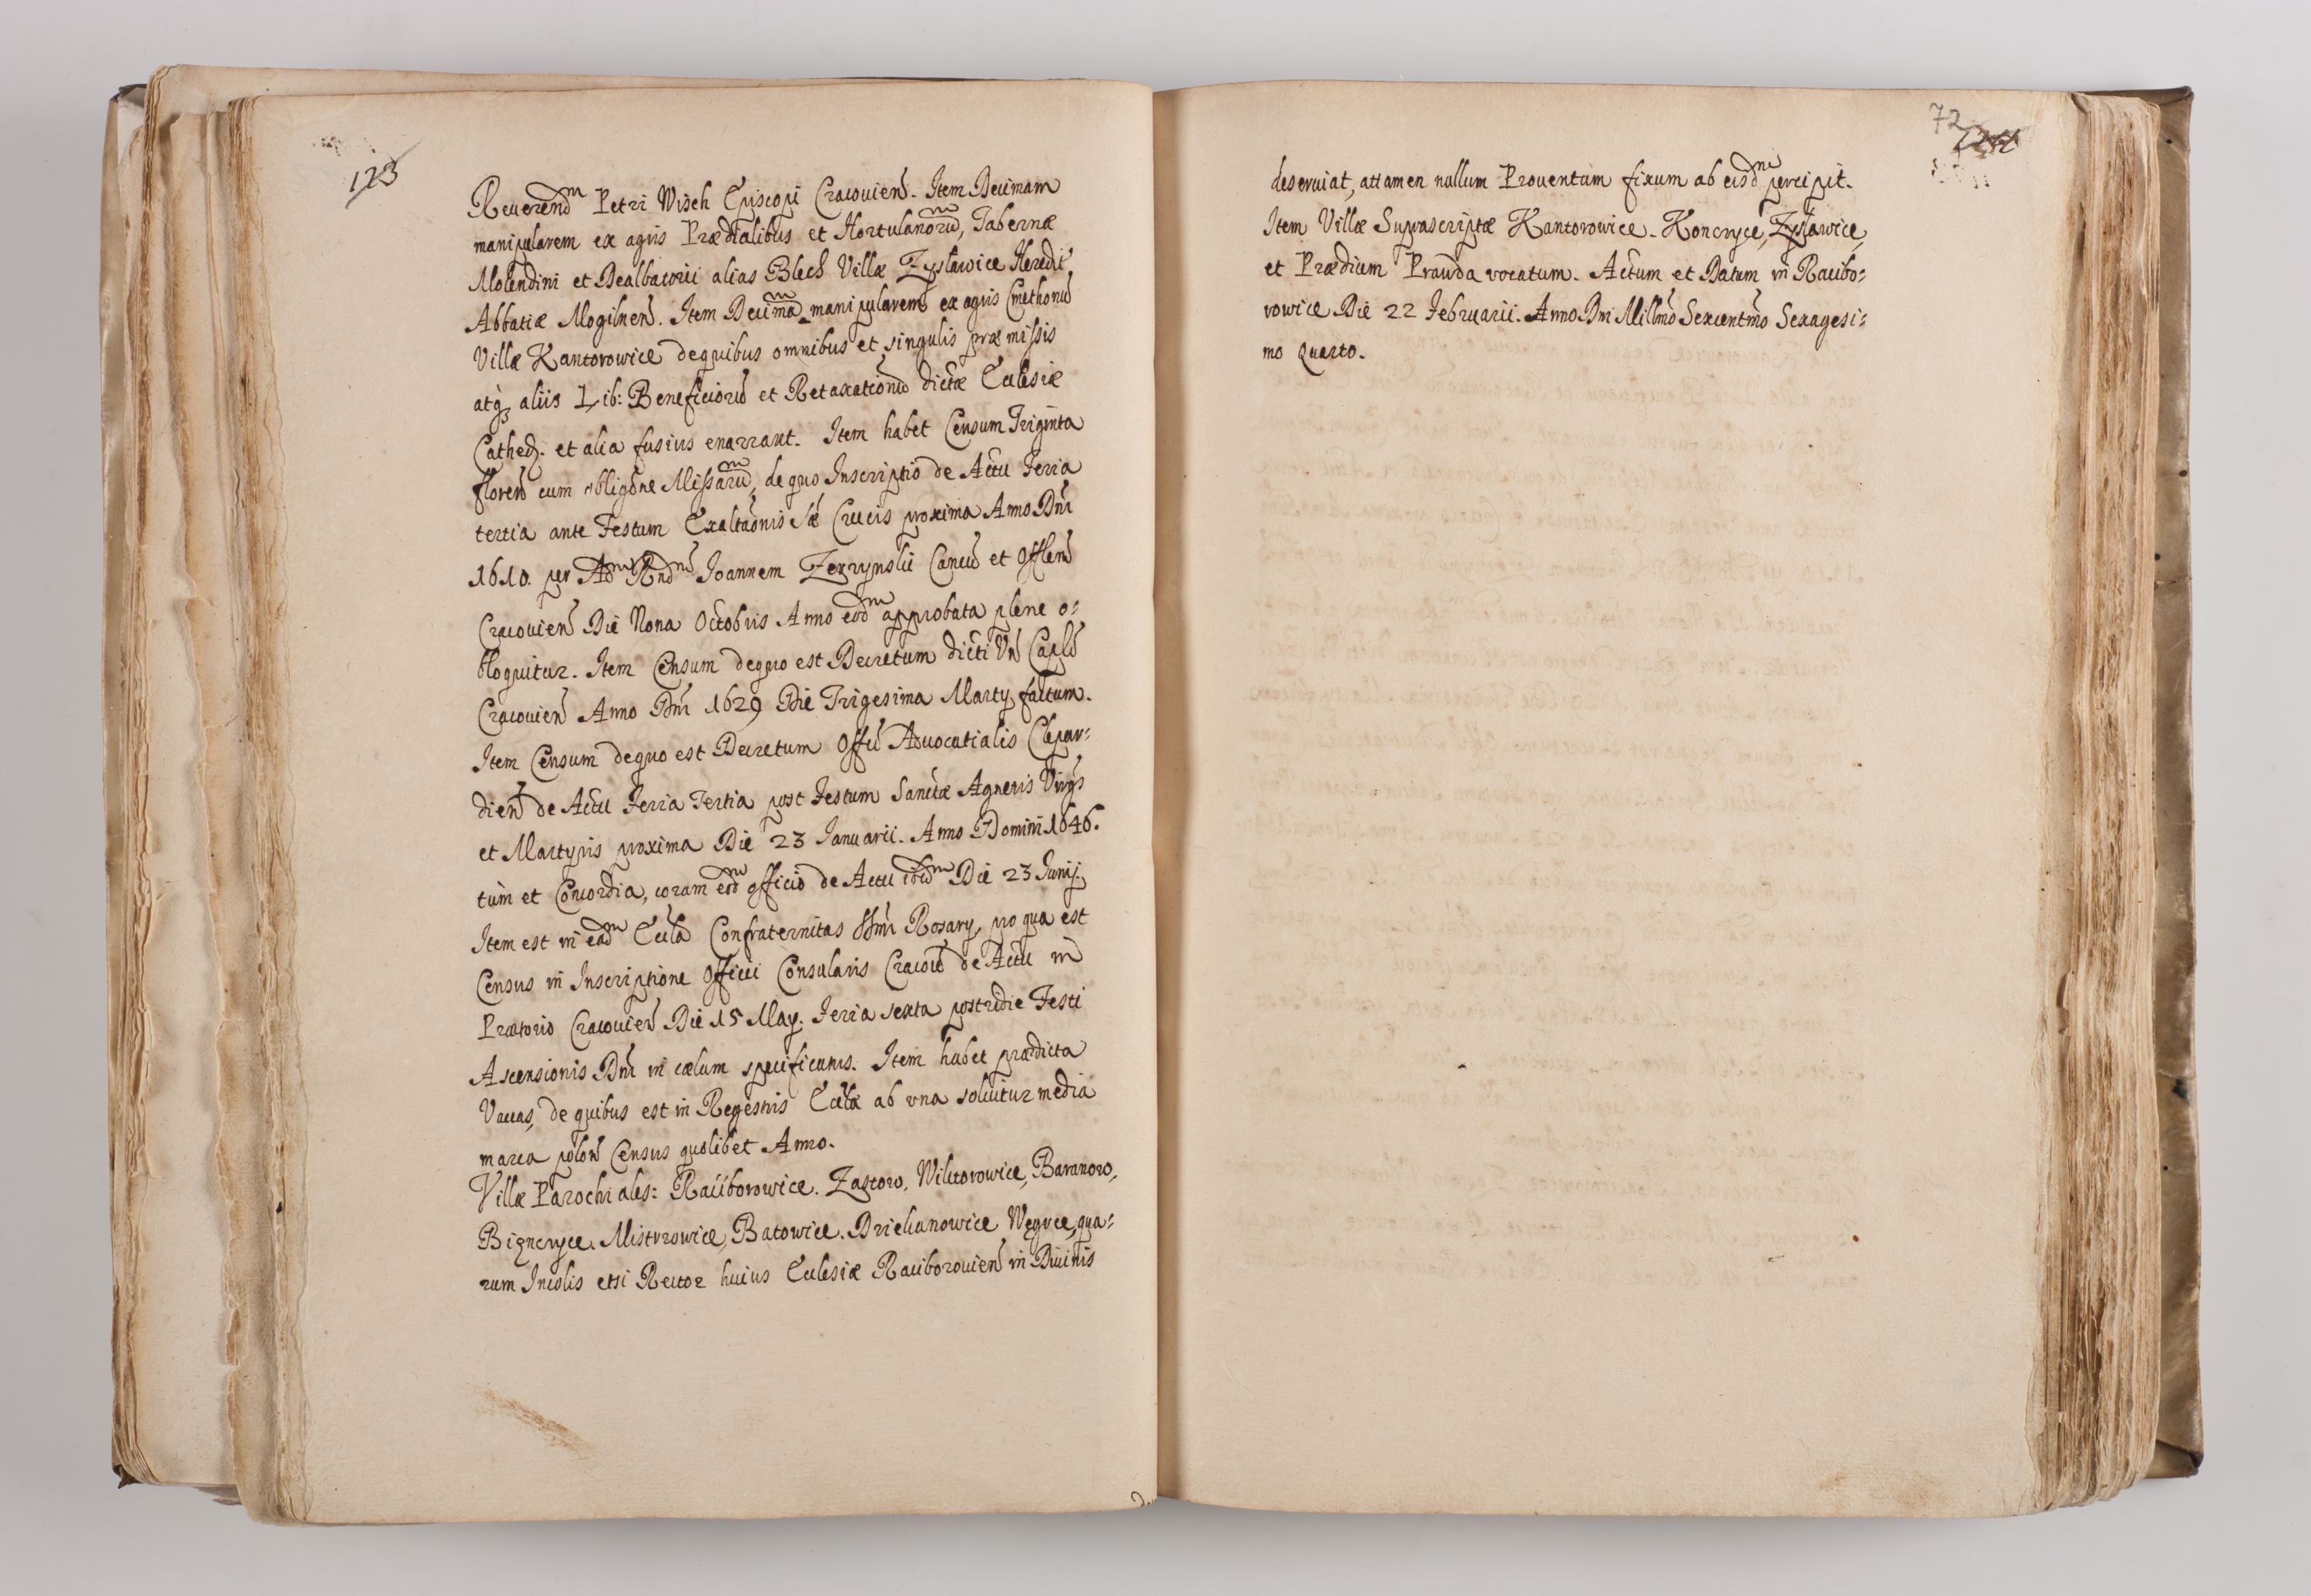 123
Reuerendm Petri Wisch Episcopi Cracouien. Item Decimam
manipularem ex agris Prædialibus et Hortulanorum, Tabernæ
Molendini et Dealbatorii alias Blech Villæ Zyslawice Heredit
Abbatiæ Mogilnen. Item Decimam manipularem ex agris Cmethonu
Villæ Kantorowice dequibus omnibus et singulis præmissis
atq aliis Lib: Beneficioru et Retaxationu dictæ Ecclesiæ
Cathed. et alia fusius enarrant. Item habet Censum Triginta
floren cum obligone Missaru, de quo Inscriptio de Actu Feria
tertia ante Festum Exaltaonis Sæ Crucis proxima Anno Dni
1610. per Adm Rndm Joannem Cancu et Offlen
Cracouien Die Nona Octobris Anno eodm approbata plene o:
bloquitur. Item Censum dequo est Decretum dicti Vn Caplu
Cracouien Anno Dni 1629 Die Trigesima Marty factum.
Item Censum dequo est Decretum Offii Aduocatialis Clepar:
dien de Actu Feria Tertia post Festum Sanctæ Agnetis Virgs
et Martyris proxima Die 23 Januarii. Anno Domini 1646.
tùm et Concordia, coram eodm officio de Actu ibidm Die 23 Junij.
Item est in eadm Eccla Confraternitas SSmi Rosary, pro qua est
Census in Inscriptione Officii Consularis Cracou de Actu in
Prætorio Cracouien Die 15 May. Feria sexta postridie Festi
Ascensionis Dni in cælum specificatus. Item habet prædicta
Vaccas, de quibus est in Regestris Eccla ab vna soluitur media
marca polon Census quolibet Anno.
Villæ Parochiales: Raciborowice. Zastow, Wiktorowice, Baranow,
Bienczyce. Mistrzowice, Batowice. Dziekanowice Węgrce, qua:
rum Incolis etsi Rector huius Ecclesiæ Raciborouien in Diuinis
72
deseruiat, attamen nullum Prouentum fixum ab eisdm percipit.
Item Villæ Suprascriptæ Kantorowice. Konczyce, Zyslawice,
et Prædium Prauda vocatum. Actum et Datum in Racibo:
rowice Die 22 Februarii. Anno Dni Millmo Sexcentmo Sexagesi:
mo Quarto.